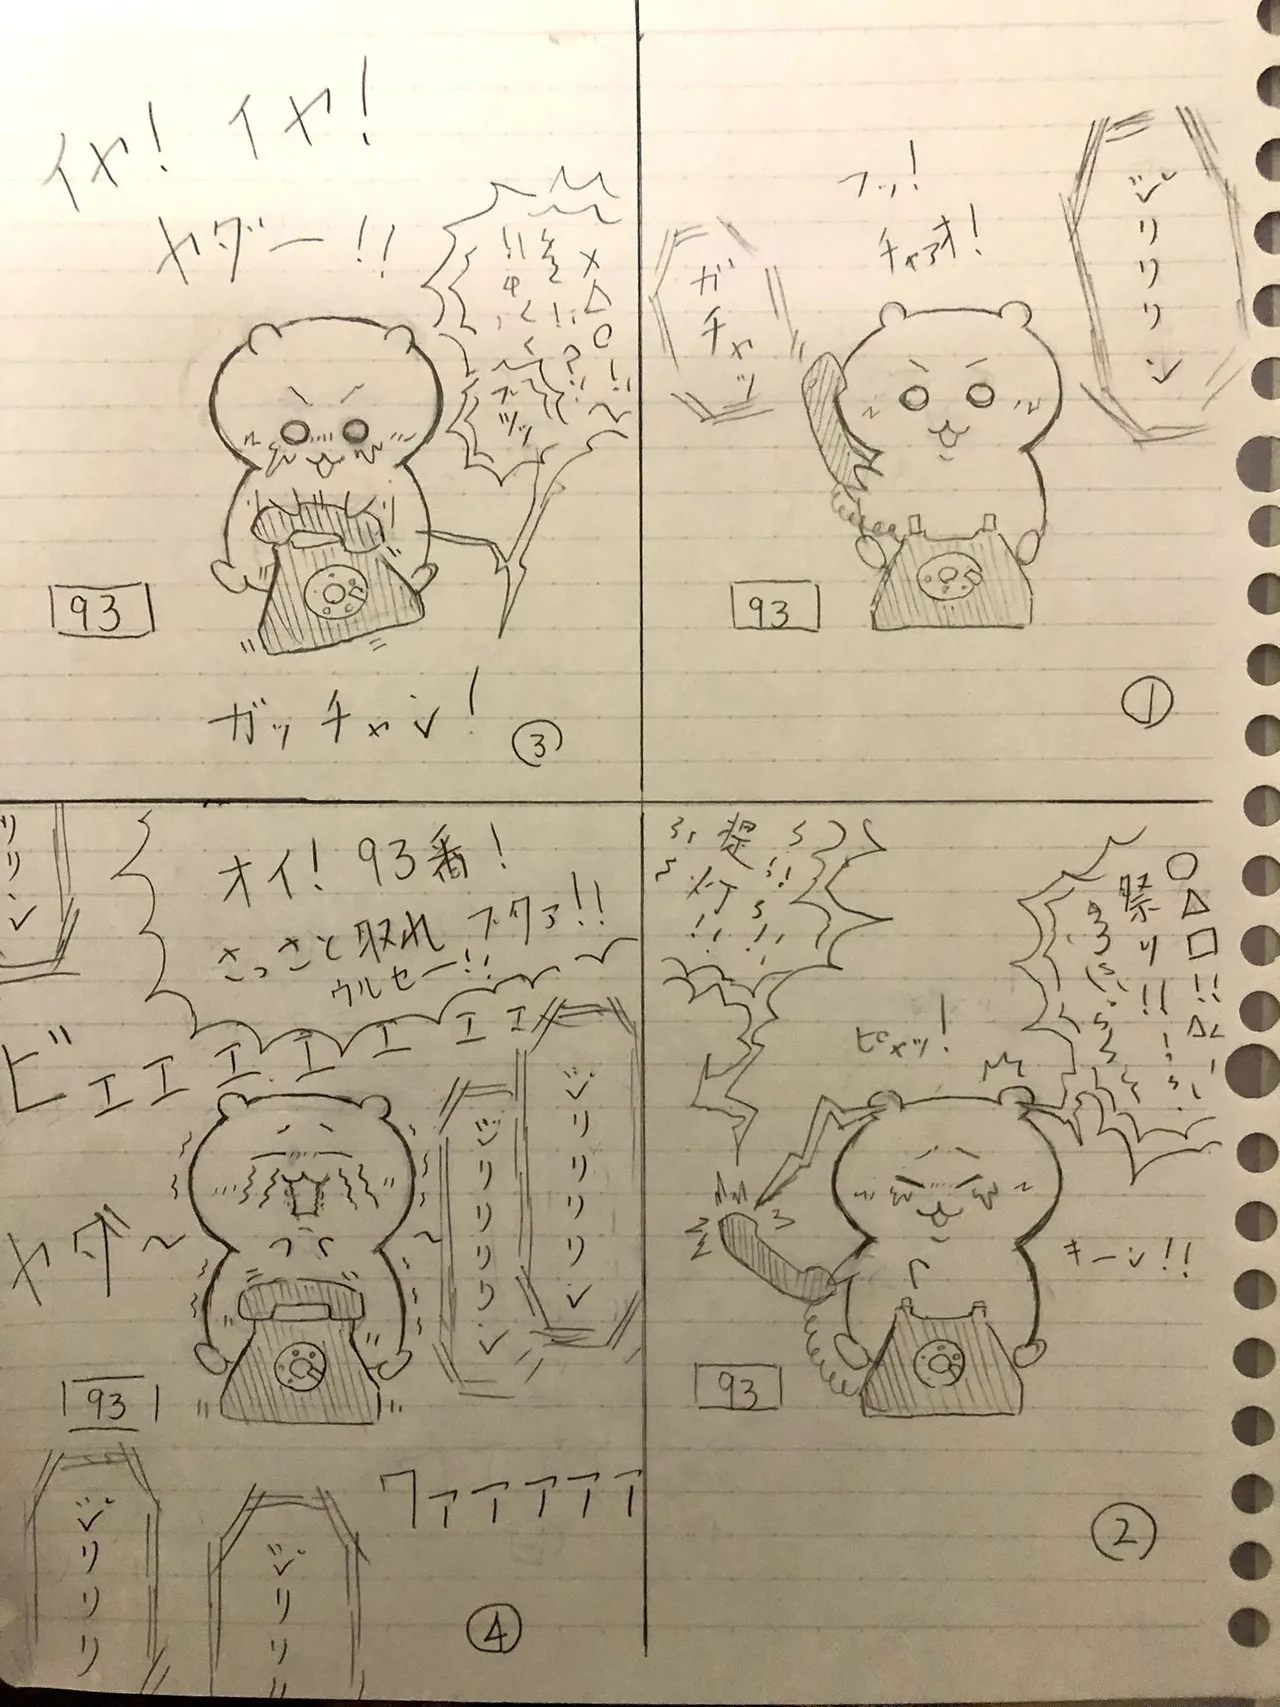 ジリリリン
フッ!
チャァオ!
ガチャッ
93
①
○△□!!
祭り!!
提灯!!
ピャッ!
キーン!!
93
②
×△○!!
ブツッ
イヤ!イヤ!
ヤダー!!
93
ガッチャン!
③
ジリリリリン
ジリリリリン
オイ!93番!
さっさと取れブタァ!!
ウルセー!!
リリン
ビエエエエエエエ
ヤダ〜
93
ワァアアアア
ジリリリ
ジリリ
④